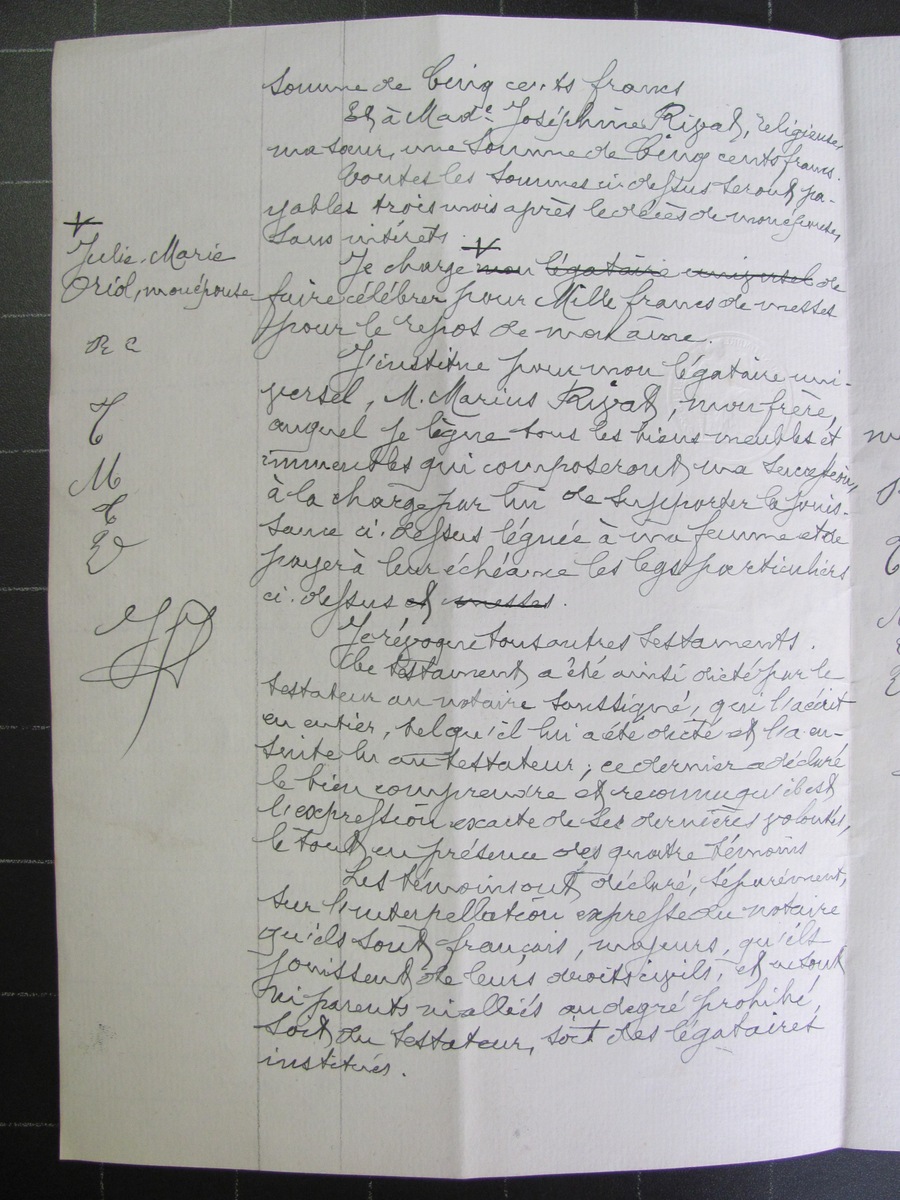 somme de Cinq cents francs
Et à Madᵉ Joséphine Rivat, religieuse,
ma sœur, une somme de Cinq cents francs.
Toutes les sommes ci-dessus seront pa-
yables trois mois après le décès de mon épouse,
sans intérêts.
Je charge mon légataire universel de
faire célébrer pour Mille francs de messes
pour le repos de mon âme.
J'institue pour mon légataire uni-
versel, M. Marius Rivat, mon frère,
auquel je lègue tous les biens meubles et
immeubles qui composeront ma succession,
à la charge par lui de supporter la jouis-
sance ci-dessus léguée à ma femme et de
payer à leur échéance les legs particuliers
ci-dessus et messes.
Je révoque tous autres testaments.
Ce testament a été ainsi dicté par le
testateur au notaire soussigné, qui l'a écrit
en entier, tel qu'il lui a été dicté et l'a en-
suite lu au testateur; ce dernier a déclaré
le bien comprendre et reconnu qu'il est
l'expression exacte de ses dernières volontés,
le tout en présence des quatre témoins
Les témoins ont déclaré, séparément,
sur l'interpellation expresse du notaire
qu'ils sont français, majeurs, qu'ils
jouissent de leurs droits civils, et ne sont
ni parents ni alliés au degré prohibé,
soit du testateur, soit des légataires
institués.
Julie-Marie
Oriol, mon épouse
M